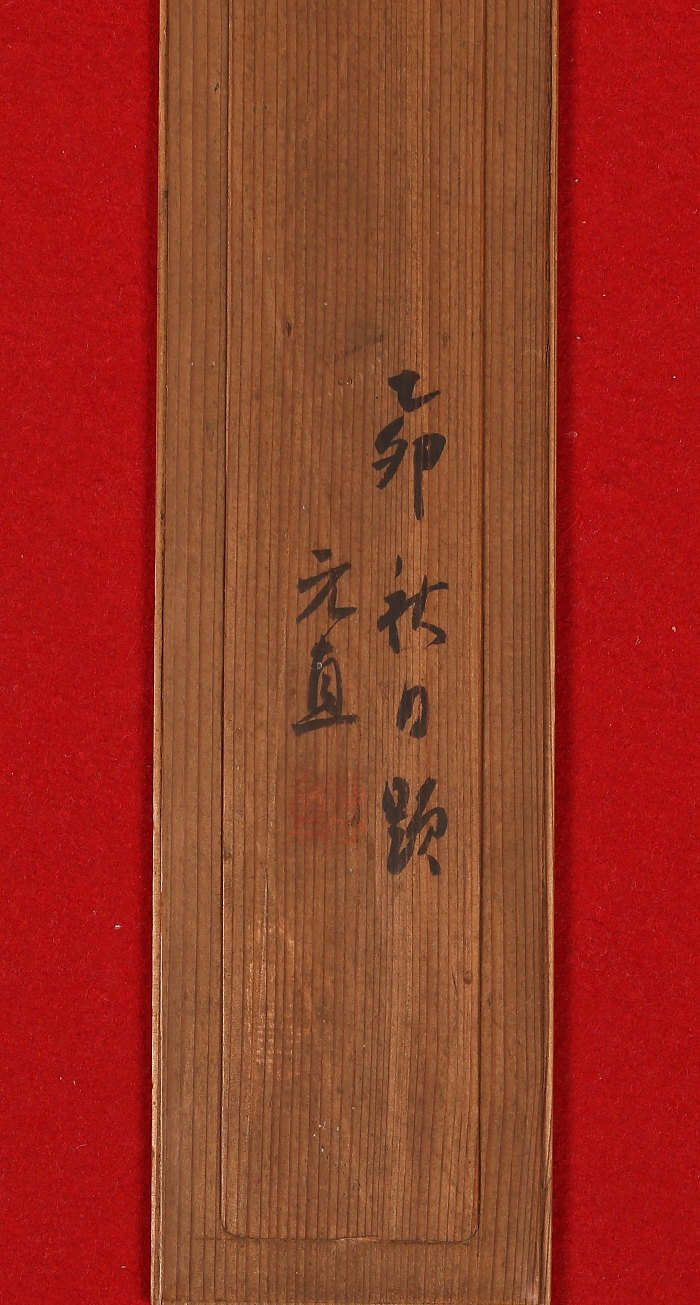 乙卯秋日題
元直